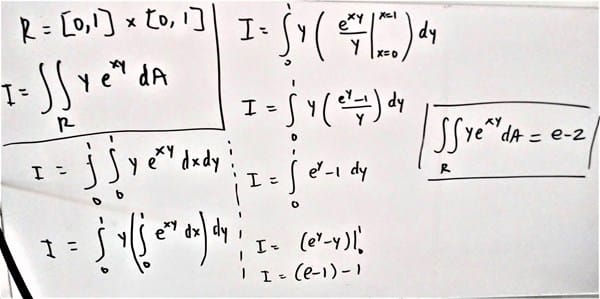 R = [0,1] × [0,1]
I = ∬_R y e^{xy} dA
I = ∫_0^1 ∫_0^1 y e^{xy} dxdy
I = ∫_0^1 y(∫_0^1 e^{xy} dx) dy
I = ∫_0^1 y ( e^{xy}/y |_{x=0}^{x=1} ) dy
I = ∫_0^1 y ( (e^y-1)/y ) dy
I = ∫_0^1 e^y-1 dy
I = (e^y-y)|_0^1
I = (e-1)-1
∬_R ye^{xy} dA = e-2